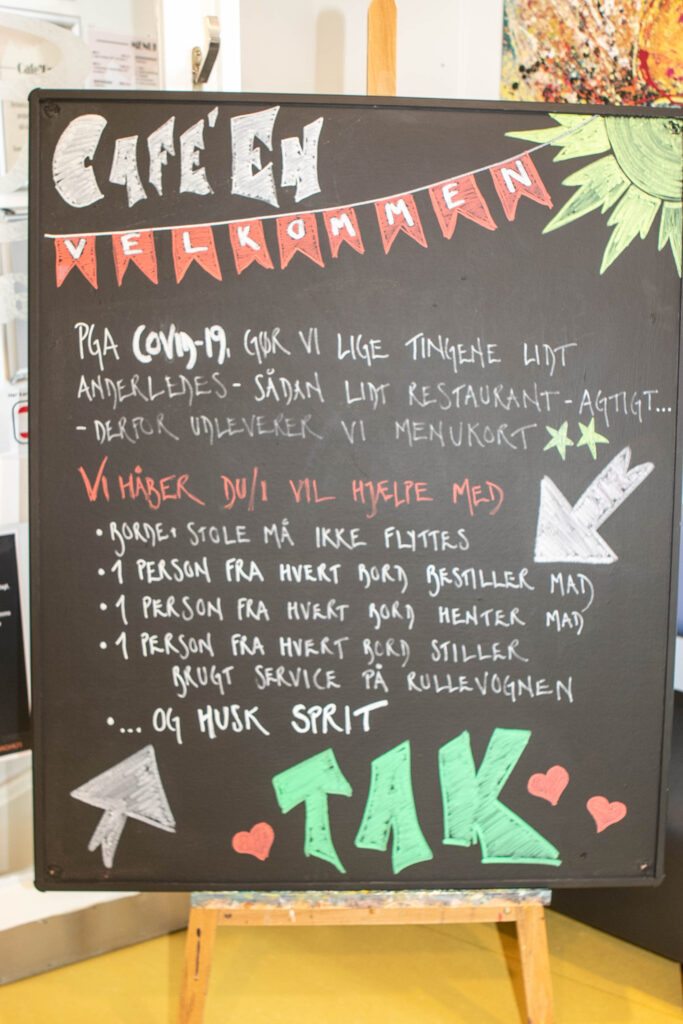 MENU
Café'En
CAFÉ'EN
VELKOMMEN
PGA COVID-19, GØR VI LIGE TINGENE LIDT
ANDERLEDES - SÅDAN LIDT RESTAURANT-AGTIGT...
- DERFOR UDLEVERER VI MENUKORT
VI HÅBER DU/I VIL HJÆLPE MED
• BORDE + STOLE MÅ IKKE FLYTTES
• 1 PERSON FRA HVERT BORD BESTILLER MAD
• 1 PERSON FRA HVERT BORD HENTER MAD
• 1 PERSON FRA HVERT BORD STILLER
BRUGT SERVICE PÅ RULLEVOGNEN
• ... OG HUSK SPRIT
TAK